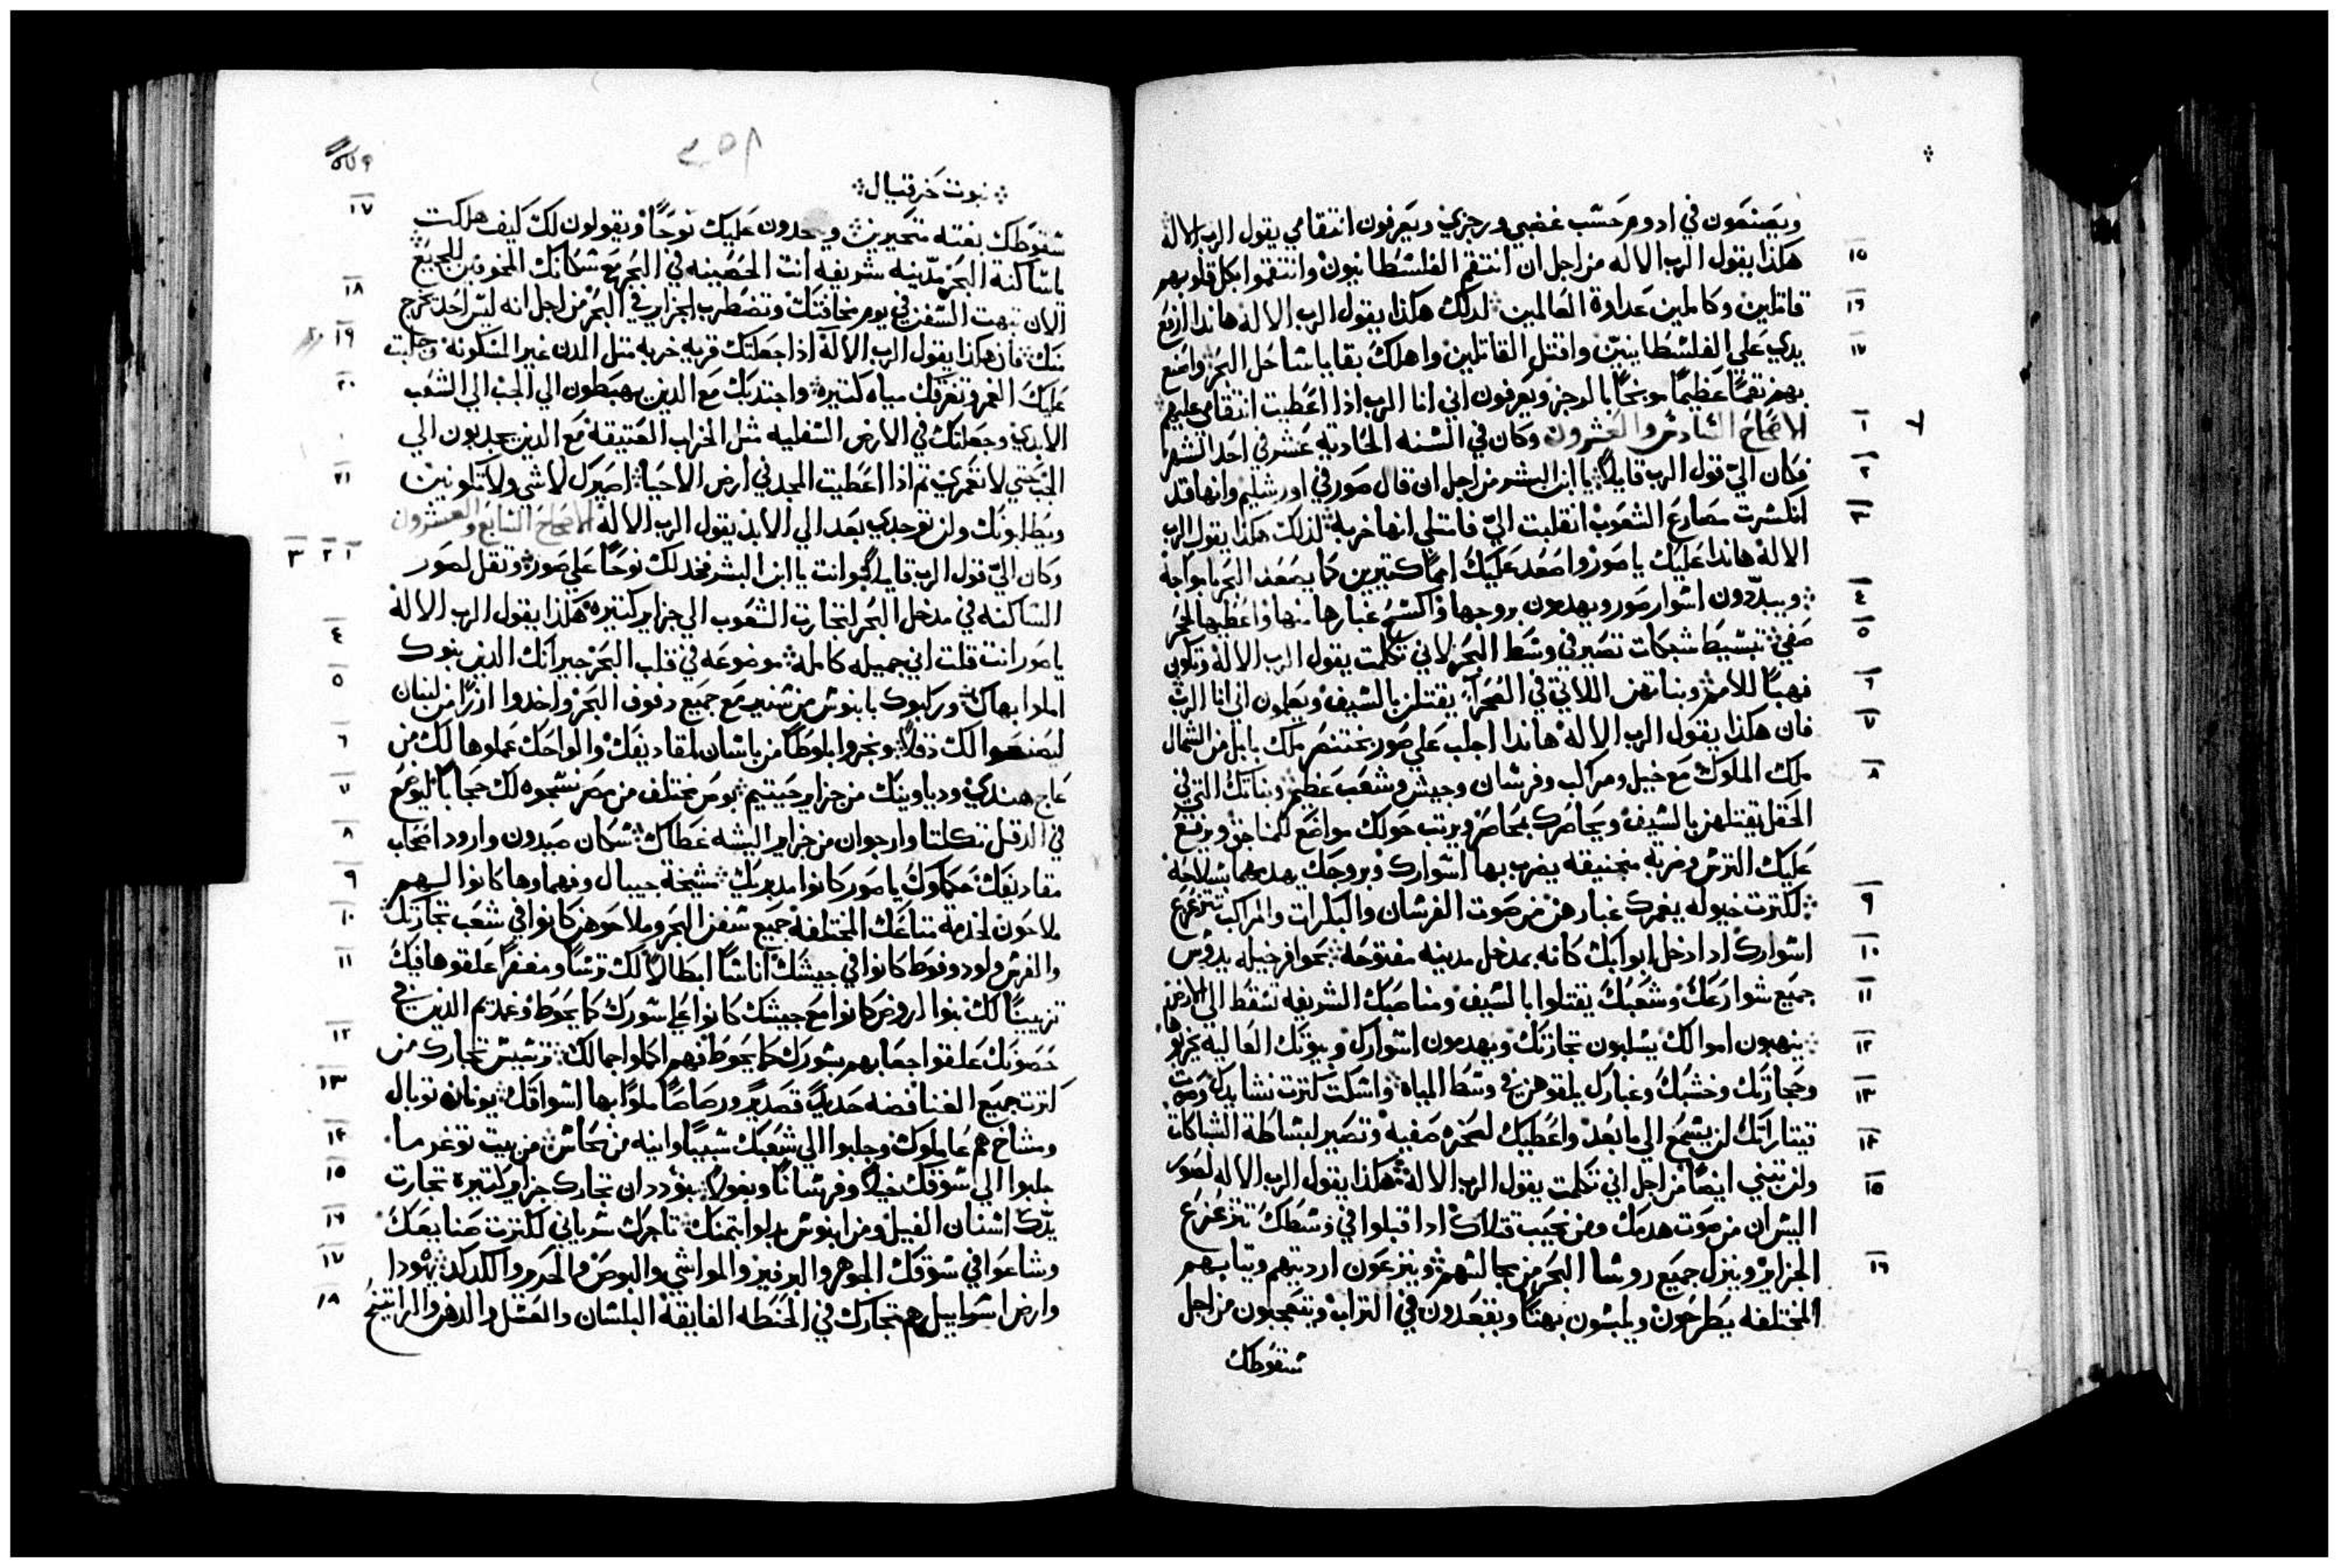 ويصنعون في ادوم حسب غضبي ورجزي ويعرفون انتقامي يقول الرب الاله
هكذا يقول الرب الاله من اجل ان انتقم الفلسطانيون وانتقموا بكل قلوبهم ١٥
قاتلين وكاملين عداوة العالمين لذلك هكذا يقول الرب الاله هاندا ارفع ١٦
يدي علي الفلسطانيين واقتل القاتلين واهلك بقايا ساحل البحر واصنع ١٧
بهم نقمًا عظيمًا موبخًا بالرجز ويعرفون اني انا الرب اذا اعطيت انتقامي عليهم
الاصحاح السادس والعشرون وكان في السنه الحاديه عشر في احد الشهر ١
فكان الي قول الرب قايلاً يا ابن البشر من اجل ان قال صور في اورشليم وانها قد ٢
انكسرت مصارع الشعوب انقلبت الي فامتلي انها خربه لذلك هكذا يقول الرب ٣
الاله هاندا عليك يا صور واصعد عليك اممًا كتيرين كما يصعد البحر بامواجه
ويبدّدون اسوار صور ويهدمون بروجها واكسح غبارها منها واعطيها لحجر ٤
صفي تبسيط شبكات تصير في وسط البحر لاني تكلمت يقول الرب الاله وتكون ٥
نهبًا للامم وبناتهن اللاتي في الصحرآ يقتلن بالسيف ويعلمون اني انا الرب ٦
فان هكذا يقول الرب الاله هاندا اجلب علي صور بختنصر ملك بابل من الشمال ٧
ملك الملوك مع خيل ومراكب وفرسان وجيش وشعب عظيم وبناتك التي في ٨
الحقل يقتلهن بالسيف ويحاصرك بمحاصر ويرتب حولك مواضع للمناجق ويرفع
عليك الترس ومرته منجنيقه يضرب بها اسوارك وبروجك يهدمها بسلاحه
لكترت خيوله يغمرك غبارهن من صوت الفرسان والبكرات والمراكب تتزعزع ٩
اسوارك ادا دخل ابوابك كانه بمدخل مدينه مفتوحه بحوافر خيله يدوس ١٠
جميع شوارعك وشعبك يقتلوا بالسيف ومناصبك الشريفه تسقط الي الارض ١١
ينهبون اموالك يسلبون تجارتك ويهدمون اسوارك وبيوتك العاليه يخربوها ١٢
وحجارتك وخشبك وغبارك يلقوهن في وسط المياه واسكت كترت نشايدك وصوت ١٣
قيتاراتك لن يسمع الي ما بعد واعطيك لصخره صفيه وتصير لبساطة الشباكات ١٤
ولن تبتني ايضًا من اجل اني تكلمت يقول الرب الاله هكذا يقول الرب الاله لصور ١٥
اليس ان من صوت هدمك ومن نحيب قتلاك اذا قبلوا في وسطك تتزعزع
الجزاير وينزل جميع روسا البحر من مجالسهم وينزعون ارديتهم وتيابهم ١٦
المختلفه يطرحون ويلبسون بهتًا ويقعدون في التراب ويتعجبون من اجل
سقوطك
٢٥٨
نبوت حزقيال
سقوطك بغته متحيرين ويحدون عليك نوحًا ويقولون لك كيف هلكت ١٧
ياساكنة البحر مدينه شريفه انت الحصينه في البحر مع سكانك المخوفين للجميع
الان تبهت السفن في يوم مخافتك وتضطرب الجزاير في البحر من اجل انه ليس احد يخرج ١٨
منك فان هكذا يقول الرب الاله اذا جعلتك قريه خربه متل المدن غير المسكونه وجلبت ١٩
عليك الغمر وتغرقك مياه كتيره واجتدبك مع الدين يهبطون الي الجب الي الشعب ٢٠
الابدي وجعلتك في الارض السفليه متل الخراب العتيقه مع الدين يحدبون الي
الجب حتي لا تعمري تم اذا اعطيت المجد في ارض الاحيا اصيرك لا شي ولا تكونين ٢١
ويطلبونك ولن توجدي بعد الي الابد يقول الرب الاله الاصحاح السابع والعشرون
وكان اليّ قول الرب قايلاً وانت يا ابن البشر فخد لك نوحًا علي صور وتقل لصور ١ ٢ ٣
الساكنه في مدخل البحر لتجارت الشعوب الي جزاير كتيره هكذا يقول الرب الاله
ياصور انت قلت اني جميله كامله موضوعه في قلب البحر جيرانك الدين بنوك ٤
املدا بهاك وركبوك بابنوس من سنير مع جميع دفوف البحر واخدوا ارزًا من لبنان ٥
ليصنعوا لك دقلاً ونجروا بلوطًا من باسان لمقاديفك والواحك عملوها لك من ٦
عاج هندي ودباوينك من جزاير حيتيم بوص مختلف من مصر نسجوه لك حجابًا ليوضع ٧
في الدقل تكلتا وارجوان من جزاير اليشه غطاك سكان صيدون وارود اصحاب ٨
مقاديفك حكماوك ياصور كانوا مدبريك مشيخة جيبال وفهماوها كانوا اليهم ٩
ملاحون لخدمة متاعك المختلفه جميع سفن البحر وملاحوهن كانوا في شعب تجارتك ١٠
والفرس ولود وفوط كانوا في جيشك اناسًا ابطالاً لك ترسًا ومغفرًا علقوها فيك ١١
تزيينًا لك بنوا ارواض كانوا مع جيشك كانوا علي سورك كما يحوط وعمدتيم الدين في
حصونك علقوا جعابهم بسورك كما يحوط فهم اكملوا جمالك ترسيس تجارك من ١٢
كترت جميع الغنا فضه حديدًا قصديرًا ورصاصًا ملوا بها اسواقك يونان توبال ١٣
ومشاخ هم عاملوك وجلبوا الي شعبك سبيًا وانيه من نحاس من بيت توغرما ١٤
جلبوا الي سوقك خيلاً وفرسانًا وبغولاً بنو ددان تجارك جزاير كتيره تجارت ١٥
يدك اسنان الفيل ومن ابنوس بدلوا بتمنك تاجرك سرياني لكترت صنايعك ١٦
وشاعوا في سوقك الجوهر والبرفير والمواشي والبوص والحرير والكدكد يهودا ١٧
وارض اسراييل هم تجارك في الحنطه الفايقه البلسان والعسل والدهن والراتينج ١٨